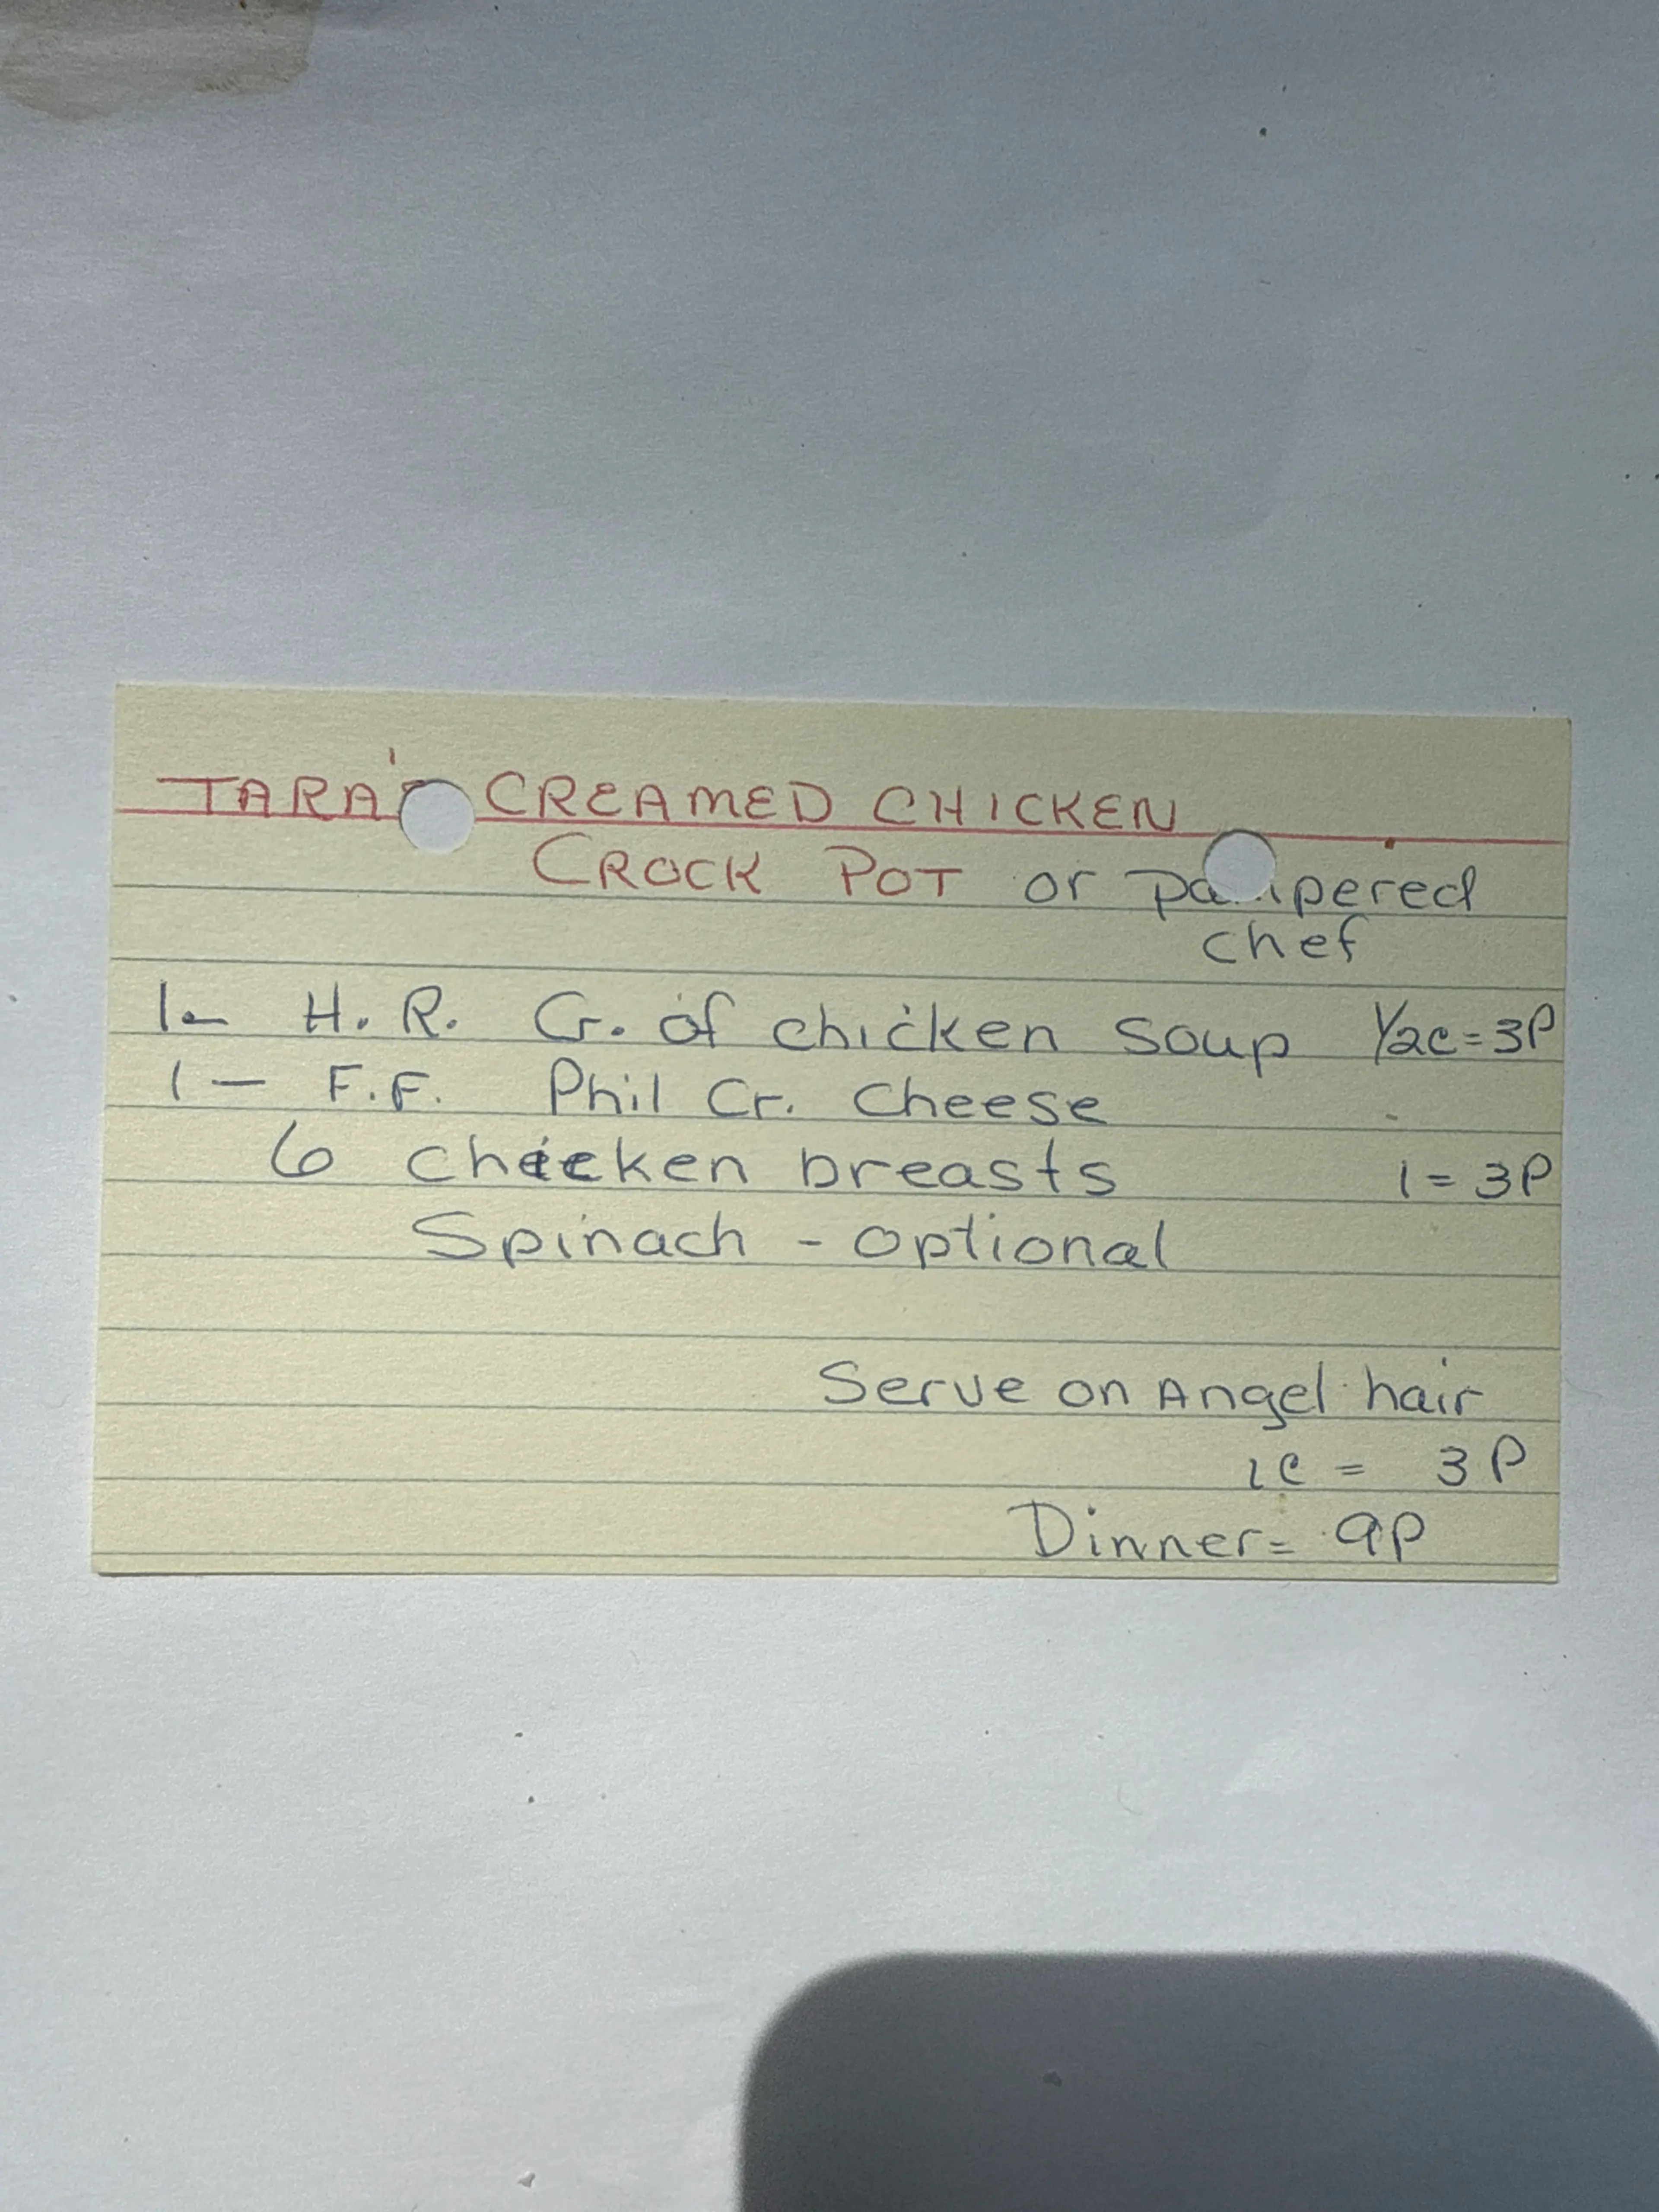 TARA'S CREAMED CHICKEN
CROCK POT or pampered
chef
1- H. R. Cr. of chicken soup 1/2c = 3P
1 - F.F. Phil Cr. Cheese
6 chicken breasts 1 = 3P
Spinach - optional
Serve on Angel hair
1c = 3P
Dinner = 9P